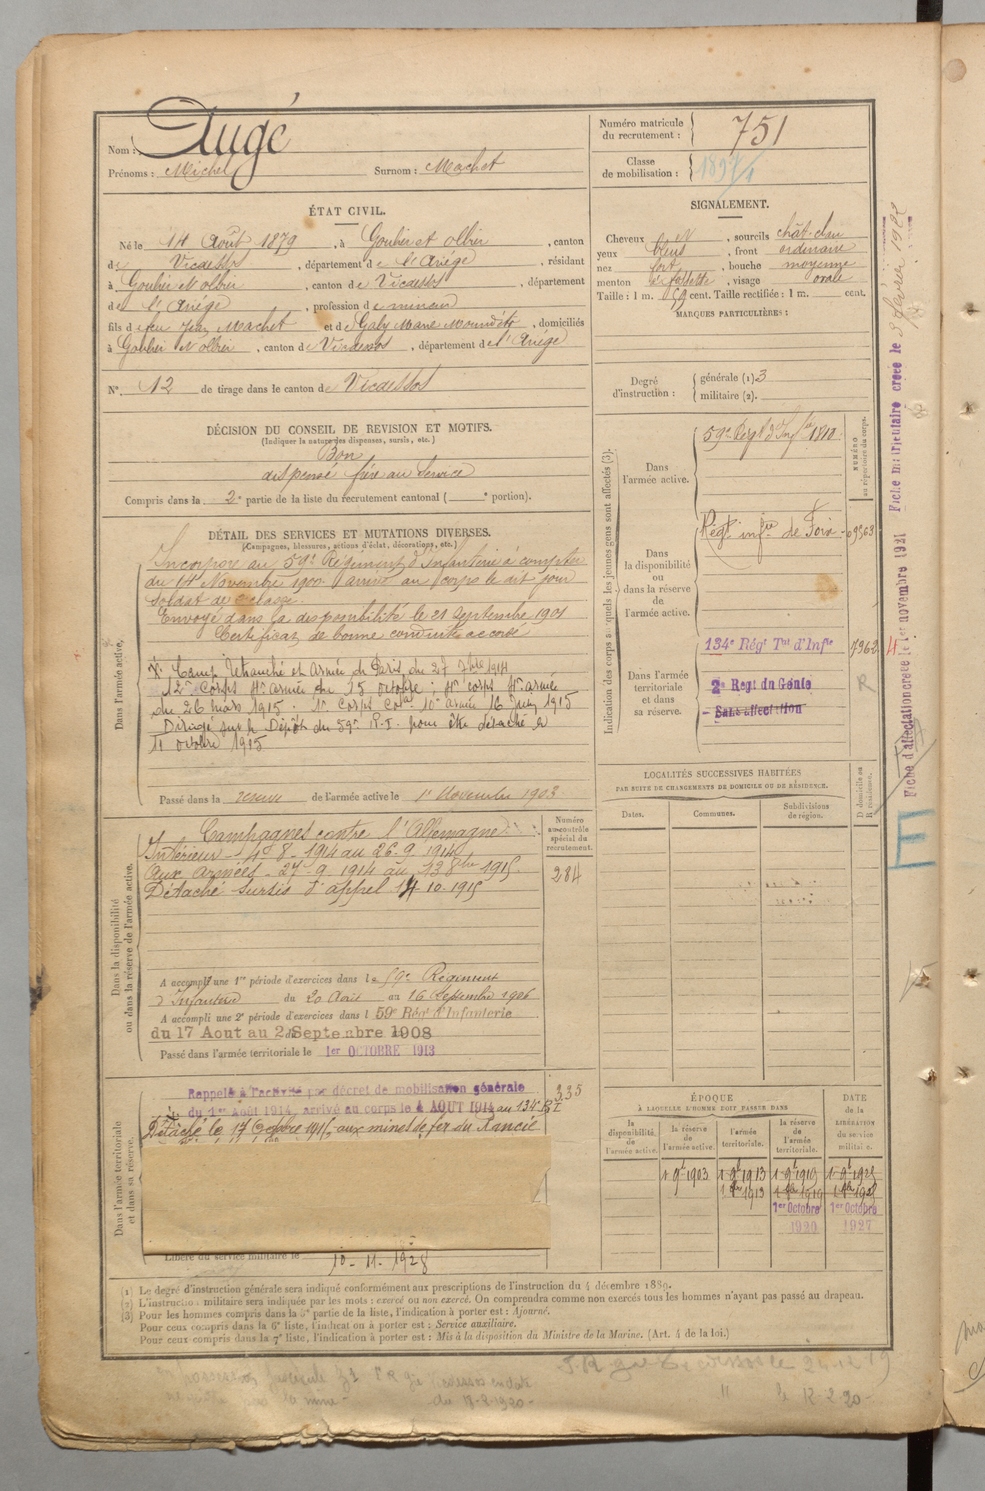 Nom : Augé
Prénoms : Michel Surnom : Machet
Numéro matricule du recrutement : 751
Classe de mobilisation : 1897/1
ÉTAT CIVIL.
Né le 14 Août 1879, à Goulier et Olbier, canton
de Vicdessos, département de l'Ariège, résidant
à Goulier et Olbier, canton de Vicdessos, département
de l'Ariège, profession de mineur
fils de feu Jean Machet et de Galy Marie, domiciliés
à Goulier et Olbier, canton de Vicdessos, département de l'Ariège
N° 12 de tirage dans le canton de Vicdessos
SIGNALEMENT.
Cheveux et, sourcils chât. clair
yeux bleus, front ordinaire
nez fort, bouche moyenne
menton à fossette, visage ovale
Taille : 1 m. 59 cent. Taille rectifiée : 1 m. cent.
MARQUES PARTICULIÈRES :
Degré d'instruction : générale (1) 3
militaire (2).
DÉCISION DU CONSEIL DE REVISION ET MOTIFS.
(Indiquer la nature des dispenses, sursis, etc.)
Bon
dispensé frère au service
Compris dans la 2e partie de la liste du recrutement cantonal ( e portion).
DÉTAIL DES SERVICES ET MUTATIONS DIVERSES.
(Campagnes, blessures, actions d'éclat, décorations, etc.)
Dans l'armée active.
Incorporé au 59e Régiment d'Infanterie à compter
du 14 Novembre 1900 arrivé au corps le dit jour
soldat de 2e classe.
Envoyé dans la disponibilité le 21 Septembre 1901
Certificat de bonne conduite accordé
Camp retranché et Armée de Paris du 27 7bre 1914
12e Corps 4e armée du 15 octobre ; 4e corps 4e armée
du 26 mars 1915. 1er Corps Cal 10e armée 16 Juin 1915
Dirigé sur le Dépôt du 59e R.I. pour être détaché le
11 octobre 1915
Passé dans la réserve de l'armée active le 1er Novembre 1903
Dans la disponibilité ou dans la réserve de l'armée active.
Numéro au contrôle spécial du recrutement.
284
Campagnes contre l'Allemagne
Intérieur 4-8-1914 au 26.9.1914
Aux armées 27-9.1914 au 13 8bre 1915.
Détaché sursis d'appel 14.10.1915
A accompli une 1re période d'exercices dans le 59e Régiment
d'Infanterie du 20 Août au 16 Septembre 1906
A accompli une 2e période d'exercices dans l 59e Régt d'Infanterie
du 17 Aout au 2 Septembre 1908
Passé dans l'armée territoriale le 1er OCTOBRE 1913
Dans l'armée territoriale et dans sa réserve.
335
Rappelé à l'activité par décret de mobilisation générale
du 1er Août 1914, arrivé au corps le 4 AOUT 1914 au 134e R.I
Détaché le 17 Octobre 1915 aux mines de fer du Rancié
Libéré du service militaire le 10-11-1928
Indication des corps auxquels les jeunes gens sont affectés (3).
NUMÉRO au répertoire du corps.
Dans l'armée active.
59e Régt d'Infie 1810.
Dans la disponibilité ou dans la réserve de l'armée active.
Régt infie de Foix - 09963
Dans l'armée territoriale et dans sa réserve.
134e Régt Tal d'Infie
2e Regt du Génie
R
- Sans affectation
LOCALITÉS SUCCESSIVES HABITÉES
PAR SUITE DE CHANGEMENTS DE DOMICILE OU DE RÉSIDENCE.
D domicile ou R résidence.
Dates. Communes. Subdivisions de région.
ÉPOQUE
À LAQUELLE L'HOMME DOIT PASSER DANS
DATE de la LIBÉRATION du service militaire.
la disponibilité de l'armée active. la réserve de l'armée active. l'armée territoriale. la réserve de l'armée territoriale.
1 9b 1903 1 9b 1913 1 9b 1919 1 9b 1928
1er Octobre 1920 1er Octobre 1927
(1) Le degré d'instruction générale sera indiqué conformément aux prescriptions de l'instruction du 4 décembre 1889.
(2) L'instruction militaire sera indiquée par les mots : exercé ou non exercé. On comprendra comme non exercés tous les hommes n'ayant pas passé au drapeau.
(3) Pour les hommes compris dans la 5e partie de la liste, l'indication à porter est : Ajourné.
Pour ceux compris dans la 6e liste, l'indication à porter est : Service auxiliaire.
Pour ceux compris dans la 7e liste, l'indication à porter est : Mis à la disposition du Ministre de la Marine. (Art. 4 de la loi.)
le 12-2-20-
du 18-2-1920-
Fiche d'affectation créée le 1er novembre 1921 Fiche matriculaire créée le 3 février 1922
E